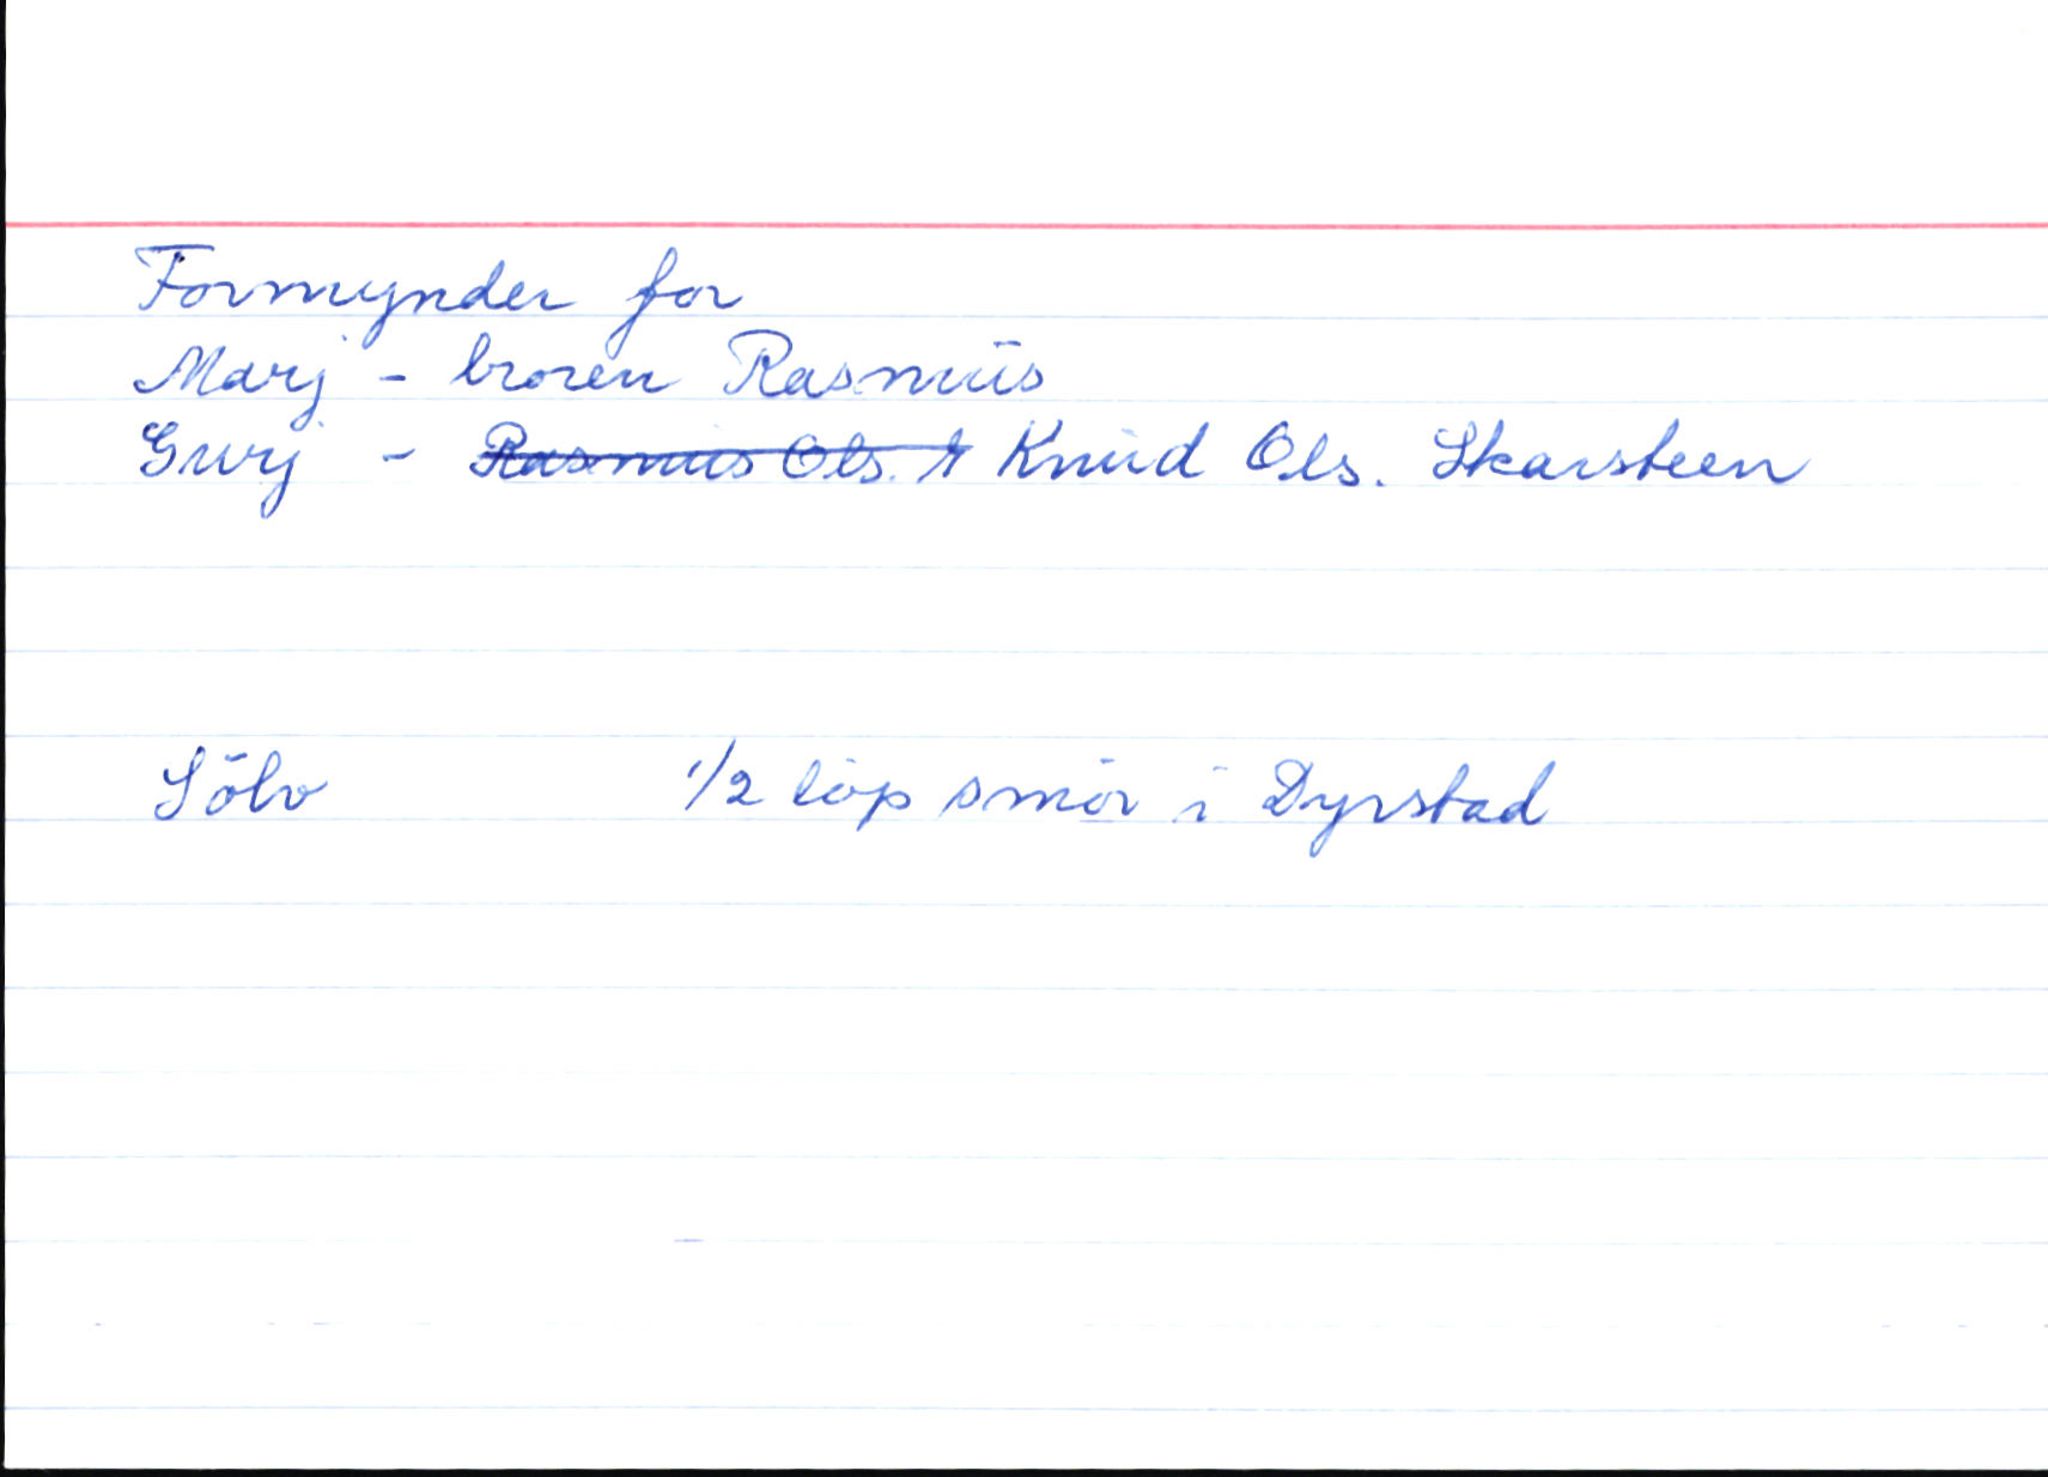 Formynder for
Marj - broren Rasmus
Gurj - Rasmus Ols. Knud Ols. Skarsteen
Sölv 1/2 löp smör i Dyrstad